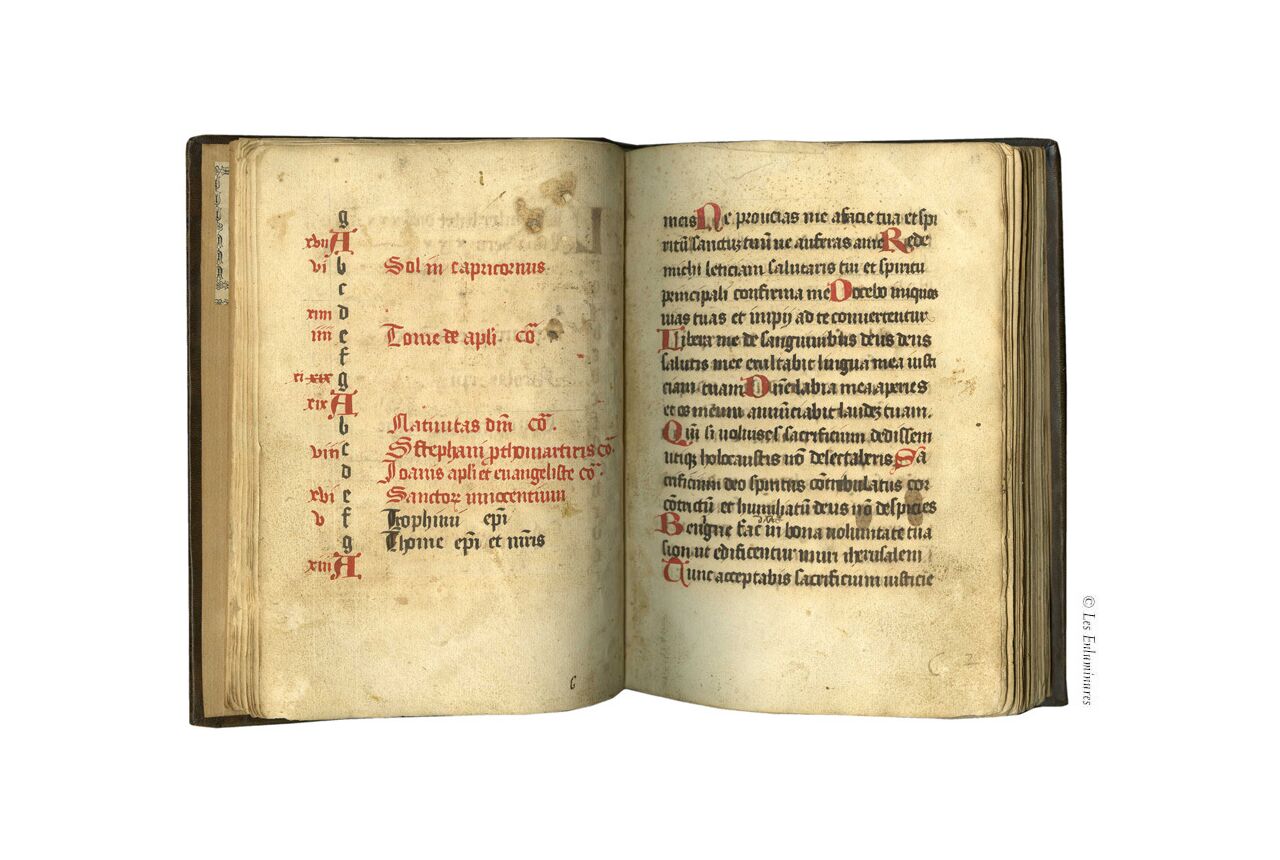 g
xvii A
vi b Sol in capricornus
c
xiiii d
iiii e Tome de apli. cō
f
xi xix g
xix A
b Natiuitas dm̄ cō.
viii c S stephani pthomartiris cō
d Joanis apli et euangeliste cō
xvi e Sanctoꝝ innocentium
v f Trophimi epi
g Thome epi et mris
xiii A
G
meis Ne proicias me a facie tua et spi
ritū sanctuȝ tuū ne auferas a me Rede
michi leticiam salutaris tui et spiritu
principali confirma me Docebo iniquos
uias tuas et impij ad te conuertentur
Libera me de sanguinibus deus deus
salutis mee exultabit lingua mea iusti
ciam tuam Dne labra mea aperies
et os meum annūciabit laudeȝ tuam.
Qm̄ si uoluises sacrificium dedissem
utiqȝ holocaustis nō delectaberis Sa
crificium deo spiritus cōtribulatus cor
cōtrictū et humiliatū deus nō despicies
Benigne fac in bona uoluntate tua
sion ut edificentur muri iherusalem
Tunc acceptabis sacrificium iusticie
© Les Enluminures